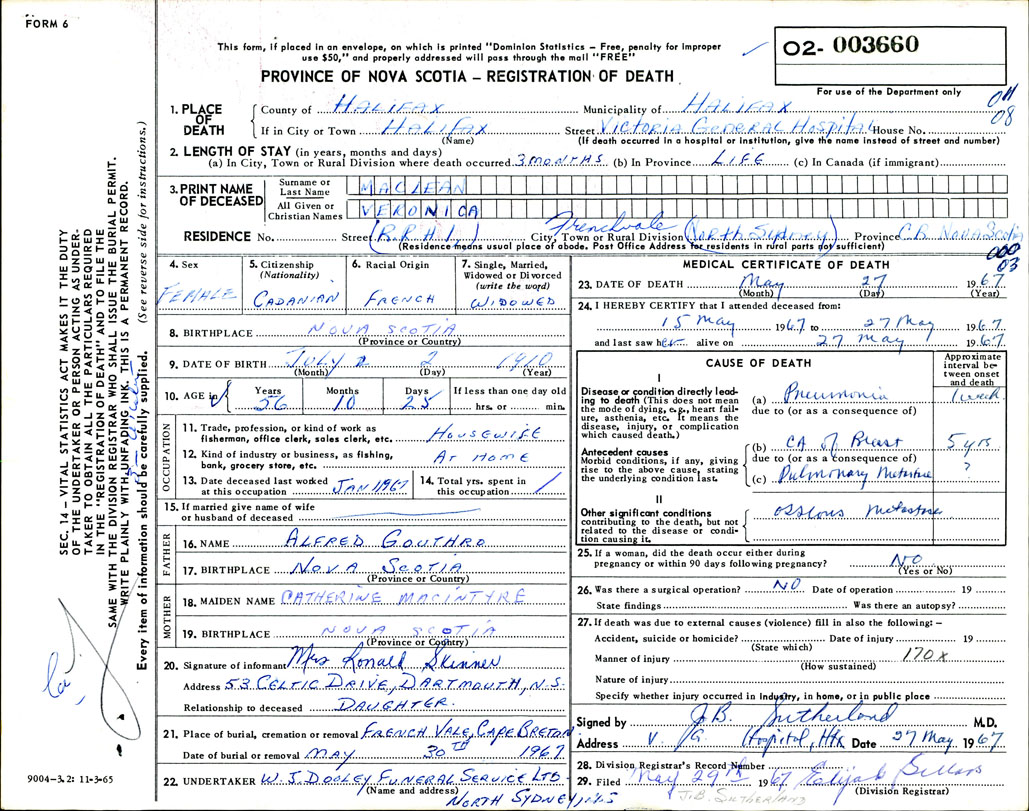 FORM 6
This form, if placed in an envelope, on which is printed "Dominion Statistics – Free, penalty for improper
use $50," and properly addressed will pass through the mail "FREE"
PROVINCE OF NOVA SCOTIA – REGISTRATION OF DEATH
O2- 003660
For use of the Department only
08
1. PLACE OF DEATH
County of HALIFAX Municipality of HALIFAX
If in City or Town HALIFAX Street VICTORIA GENERAL HOSPITAL House No.
(Name) (If death occurred in a hospital or institution, give the name instead of street and number)
2. LENGTH OF STAY (in years, months and days)
(a) In City, Town or Rural Division where death occurred 3 MONTHS (b) In Province LIFE (c) In Canada (if immigrant)
3. PRINT NAME OF DECEASED
Surname or Last Name MACLEAN
All Given or Christian Names VERONICA
RESIDENCE No. Street (R.R #1) City, Town or Rural Division Frenchvale (NORTH SYDNEY) Province C.B. NOVA SCOTIA
(Residence means usual place of abode. Post Office Address for residents in rural parts not sufficient)
000
03
4. Sex
FEMALE
5. Citizenship
(Nationality)
CADANIAN
6. Racial Origin
FRENCH
7. Single, Married,
Widowed or Divorced
(write the word)
WIDOWED
8. BIRTHPLACE NOVA SCOTIA
(Province or Country)
9. DATE OF BIRTH JULY 2 2 1910
(Month) (Day) (Year)
10. AGE in Years 56 Months 10 Days 25 If less than one day old
hrs. or min.
OCCUPATION
11. Trade, profession, or kind of work as
fisherman, office clerk, sales clerk, etc. HOUSEWIFE
12. Kind of industry or business, as fishing,
bank, grocery store, etc. AT HOME
13. Date deceased last worked
at this occupation JAN 1/1967
14. Total yrs. spent in
this occupation
15. If married give name of wife
or husband of deceased
FATHER
16. NAME ALFRED GOUTHRO
17. BIRTHPLACE NOVA SCOTIA
(Province or Country)
MOTHER
18. MAIDEN NAME CATHERINE MACINTYRE
19. BIRTHPLACE NOVA SCOTIA
(Province or Country)
20. Signature of informant Mrs Ronald Skinner
Address 53 CELTIC DRIVE, DARTMOUTH, N.S.
Relationship to deceased DAUGHTER.
21. Place of burial, cremation or removal FRENCH VALE, CAPE BRETON
Date of burial or removal MAY 30TH 1967
22. UNDERTAKER W. J. DOOLEY FUNERAL SERVICE LTD.
(Name and address)
NORTH SYDNEY, N.S
MEDICAL CERTIFICATE OF DEATH
23. DATE OF DEATH May 27 1967
(Month) (Day) (Year)
24. I HEREBY CERTIFY that I attended deceased from:
15 May 1967 to 27 May 1967
and last saw her alive on 27 May 1967
CAUSE OF DEATH
Approximate interval between onset and death
I
Disease or condition directly leading to death (This does not mean
the mode of dying, e.g., heart failure, asthenia, etc. It means the
disease, injury, or complication
which caused death.)
(a) Pneumonia 1 week
due to (or as a consequence of)
Antecedent causes
Morbid conditions, if any, giving
rise to the above cause, stating
the underlying condition last.
(b) CA of Breast 5 yrs
due to (or as a consequence of)
(c) Pulmonary Metastases ?
II
Other significant conditions
contributing to the death, but not
related to the disease or condition causing it.
osseous metastases
25. If a woman, did the death occur either during
pregnancy or within 90 days following pregnancy? NO
(Yes or No)
26. Was there a surgical operation? NO Date of operation 19
State findings Was there an autopsy?
27. If death was due to external causes (violence) fill in also the following: –
Accident, suicide or homicide? Date of injury 19
(State which)
Manner of injury 170x
(How sustained)
Nature of injury
Specify whether injury occurred in Industry, in home, or in public place
Signed by J.B. Sutherland M.D.
Address V. G. Hospital, Hfx Date 27 May 1967
28. Division Registrar's Record Number
29. Filed May 29th 1967
(Division Registrar)
J.B. SUTHERLAND
SEC. 14 – VITAL STATISTICS ACT MAKES IT THE DUTY
OF THE UNDERTAKER OR PERSON ACTING AS UNDER-
TAKER TO OBTAIN ALL THE PARTICULARS REQUIRED
IN THE "REGISTRATION OF DEATH" AND TO FILE THE
SAME WITH THE DIVISION REGISTRAR WHO SHALL ISSUE THE BURIAL PERMIT.
WRITE PLAINLY WITH UNFADING INK. THIS IS A PERMANENT RECORD.
Every item of information should be carefully supplied. (See reverse side for instructions.)
9004-3.2: 11-3-65